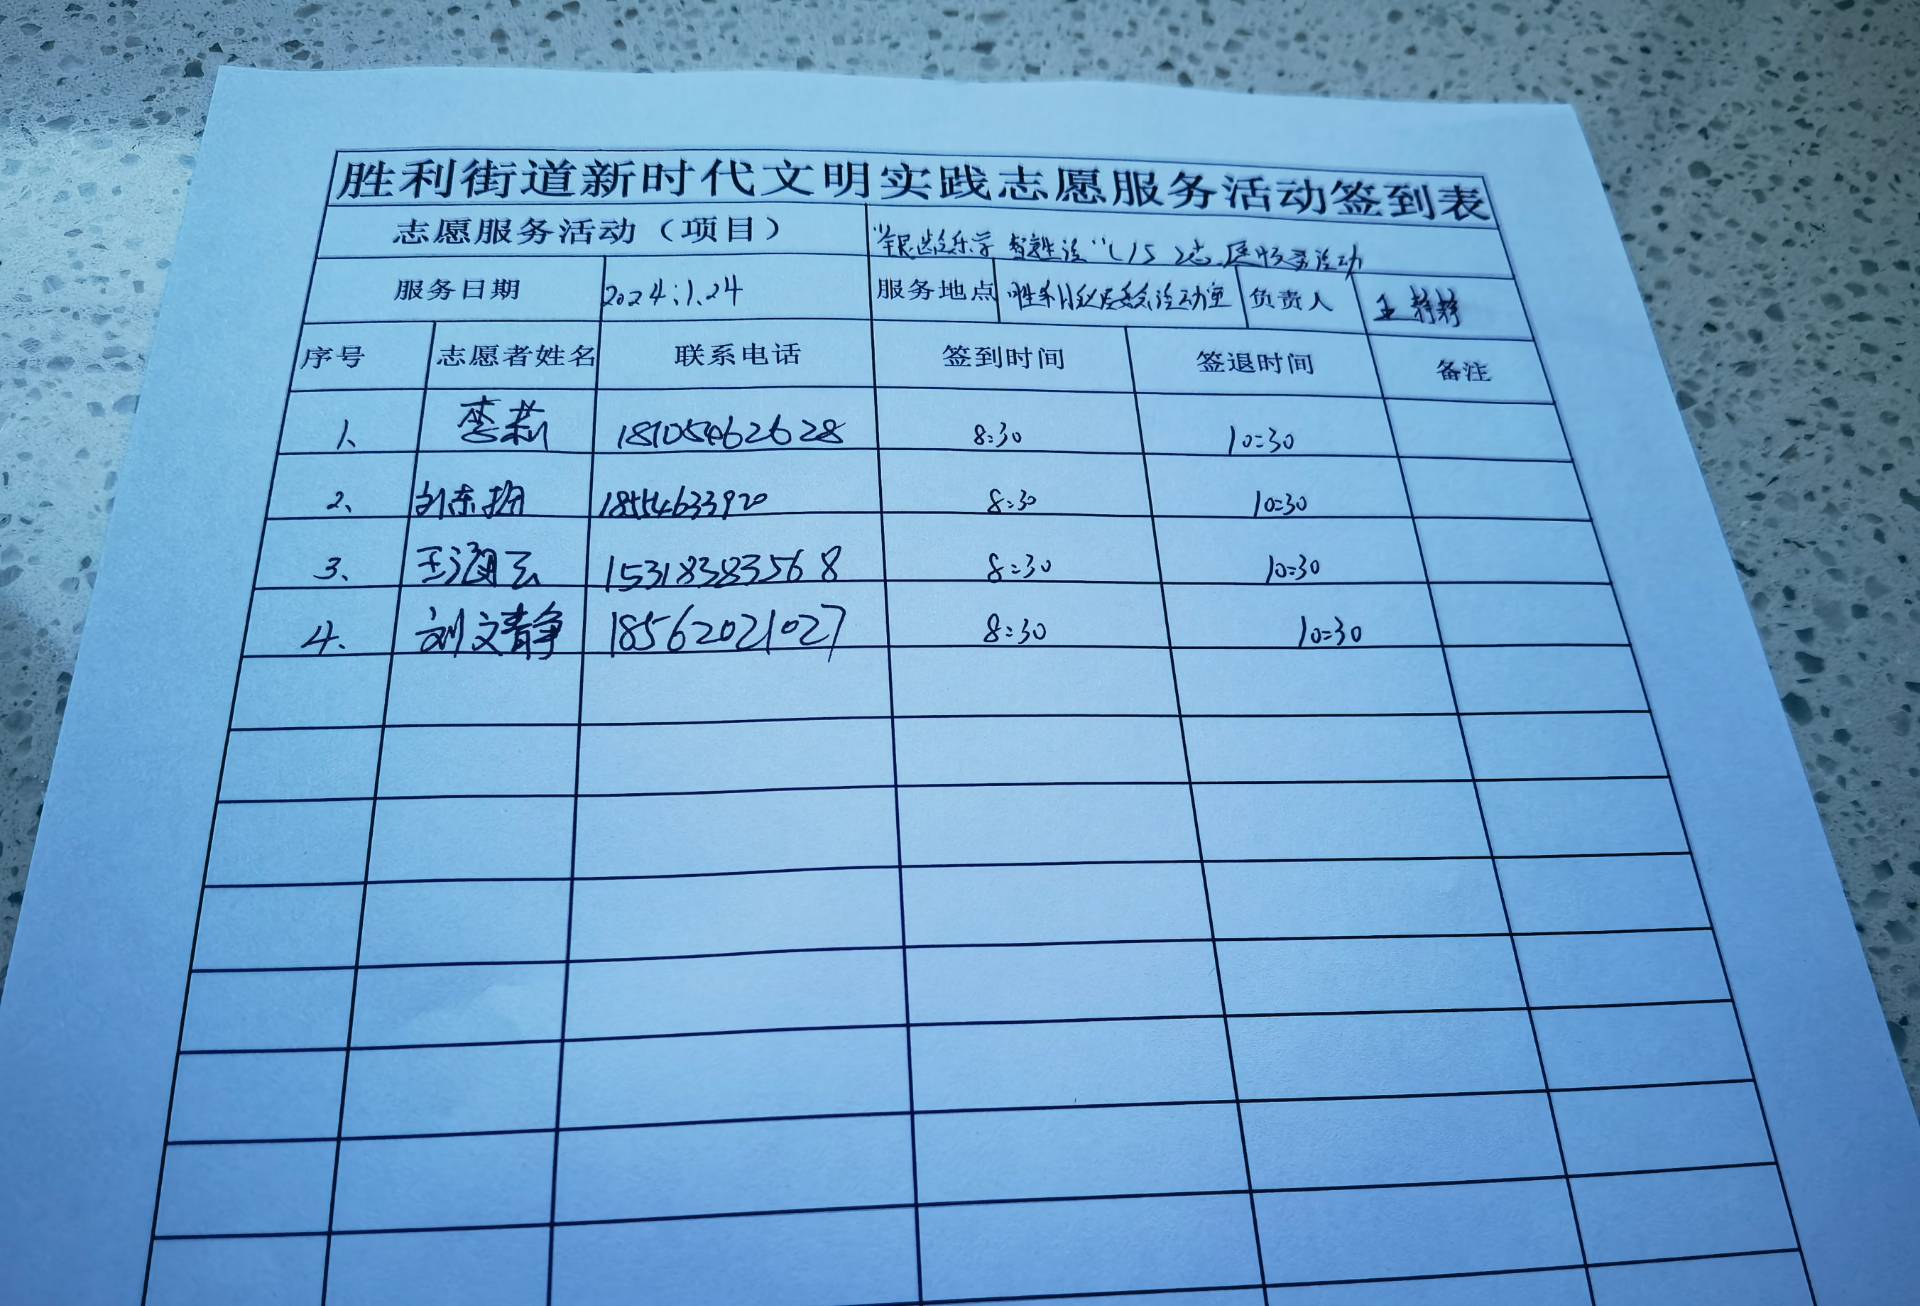 胜利街道新时代文明实践志愿服务活动签到表
志愿服务活动（项目） "银龄乐学 智趣生活"(15)志愿服务活动
服务日期 2024.1.24 服务地点 胜利社区居委会活动室 负责人 王静静
序号 志愿者姓名 联系电话 签到时间 签退时间 备注
1、 李莉 18105462628 8:30 10:30
2、 刘东梅 18554633920 8:30 10:30
3、 王海云 15318383568 8:30 10:30
4、 刘文静 18562021027 8:30 10:30